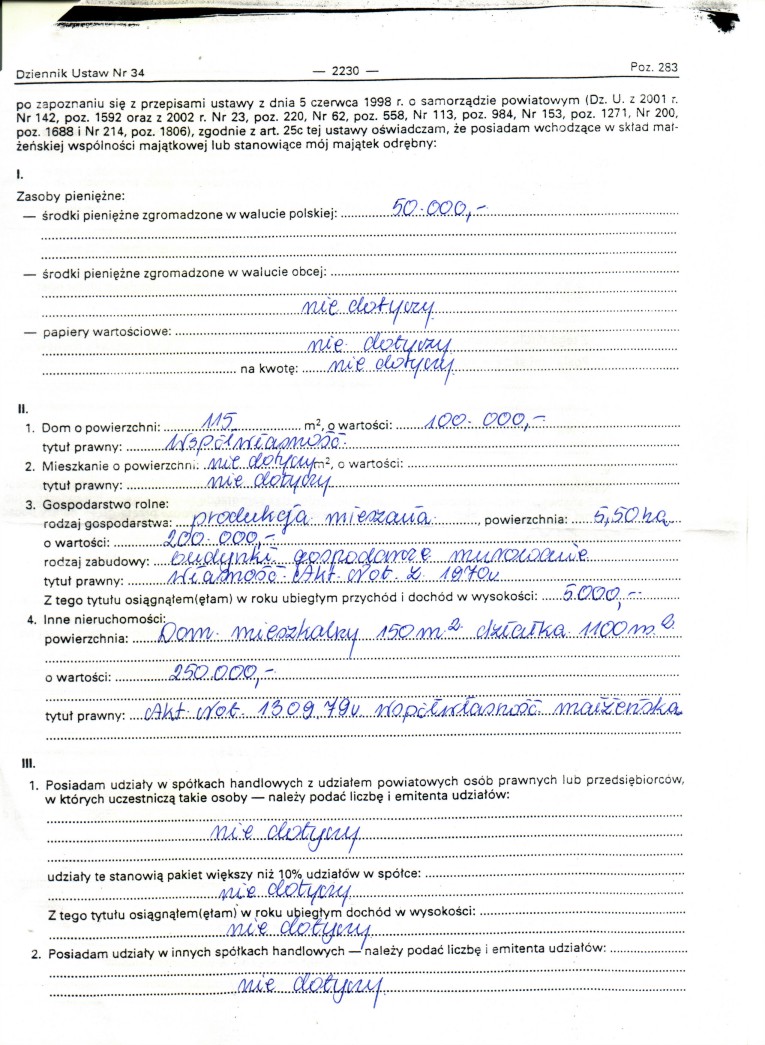 Dziennik Ustaw Nr 34 — 2230 — Poz. 283
po zapoznaniu się z przepisami ustawy z dnia 5 czerwca 1998 r. o samorządzie powiatowym (Dz. U. z 2001 r.
Nr 142, poz. 1592 oraz z 2002 r. Nr 23, poz. 220, Nr 62, poz. 558, Nr 113, poz. 984, Nr 153, poz. 1271, Nr 200,
poz. 1688 i Nr 214, poz. 1806), zgodnie z art. 25c tej ustawy oświadczam, że posiadam wchodzące w skład mał-
żeńskiej wspólności majątkowej lub stanowiące mój majątek odrębny:
I.
Zasoby pieniężne:
— środki pieniężne zgromadzone w walucie polskiej: 50.000,-
— środki pieniężne zgromadzone w walucie obcej:
nie dotyczy
— papiery wartościowe:
nie dotyczy
na kwotę: nie dotyczy
II.
1. Dom o powierzchni: 115 m², o wartości: 100.000,-
tytuł prawny: Współwłasność
2. Mieszkanie o powierzchni: nie dotyczy m², o wartości:
tytuł prawny: nie dotyczy
3. Gospodarstwo rolne:
rodzaj gospodarstwa: produkcja mieszana, powierzchnia: 5,50 ha
o wartości: 200.000,-
rodzaj zabudowy: budynki gospodarcze murowane
tytuł prawny: własność Akt Not. z 1970r
Z tego tytułu osiągnąłem(ęłam) w roku ubiegłym przychód i dochód w wysokości: 5.000,-
4. Inne nieruchomości:
powierzchnia: Dom mieszkalny 150 m² działka 1100 m²
o wartości: 250.000,-
tytuł prawny: Akt Not. 1309.79r współwłasność małżeńska
III.
1. Posiadam udziały w spółkach handlowych z udziałem powiatowych osób prawnych lub przedsiębiorców,
w których uczestniczą takie osoby — należy podać liczbę i emitenta udziałów:
nie dotyczy
udziały te stanowią pakiet większy niż 10% udziałów w spółce:
nie dotyczy
Z tego tytułu osiągnąłem(ęłam) w roku ubiegłym dochód w wysokości:
nie dotyczy
2. Posiadam udziały w innych spółkach handlowych — należy podać liczbę i emitenta udziałów:
nie dotyczy